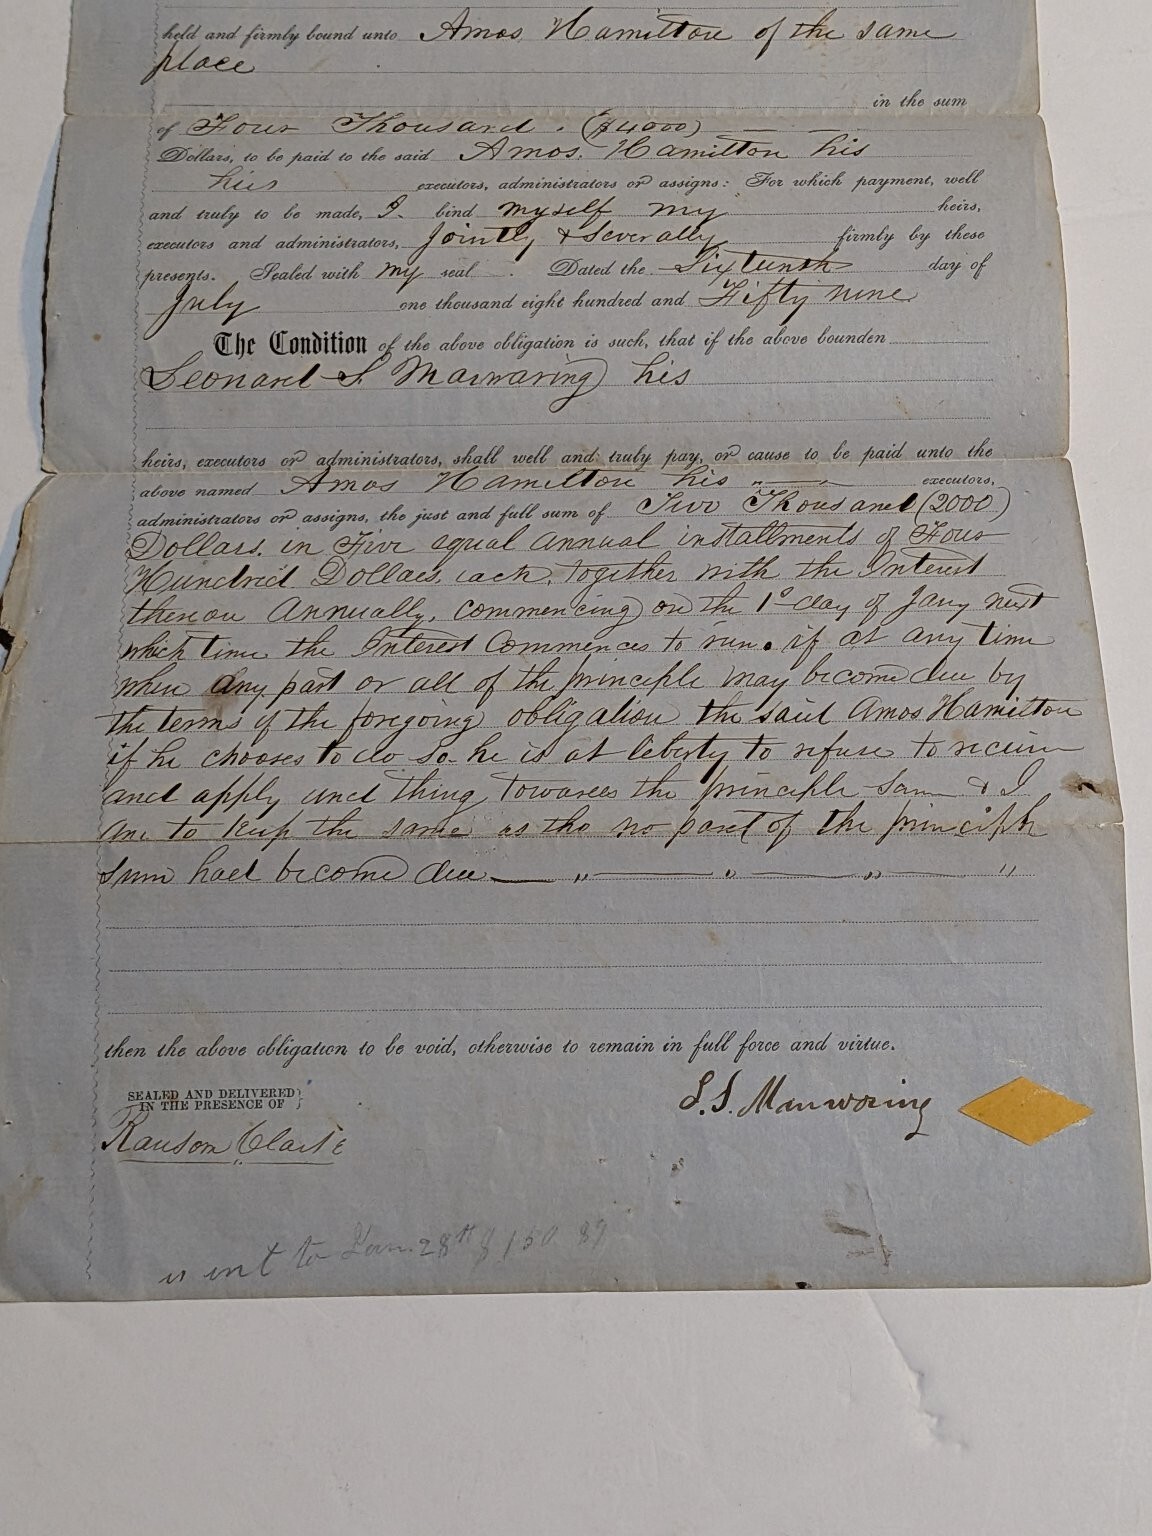 held and firmly bound unto Amos Hamilton of the same
place
in the sum
of Four Thousand . ($4000)
Dollars, to be paid to the said Amos Hamilton his
his executors, administrators or assigns: For which payment, well
and truly to be made, I bind myself my heirs,
executors and administrators, Jointly & Severally firmly by these
presents. Sealed with my seal . Dated the Sixteenth day of
July one thousand eight hundred and Fifty nine
The Condition of the above obligation is such, that if the above bounden
Leonard S. Manwaring his
heirs, executors or administrators, shall well and truly pay, or cause to be paid unto the
above named Amos Hamilton his " — " executors,
administrators or assigns, the just and full sum of Two Thousand (2000)
Dollars. in Five equal annual installments of Four
Hundred Dollars, each, together with the Interest
thereon Annually, commencing on the 1st day of Jany next
which time the Interest Commences to run. if at any time
when any part or all of the principle may become due by
the terms of the foregoing obligation the said Amos Hamilton
if he chooses to do so he is at liberty to refuse to receive
and apply thing towards the principle sum & I
am to keep the same as tho no part of the principle
sum had become due — " — " — " — "
then the above obligation to be void, otherwise to remain in full force and virtue.
SEALED AND DELIVERED }
IN THE PRESENCE OF }
L. S. Manwaring
Ransom Clark
int to Jan. 28th $150 89